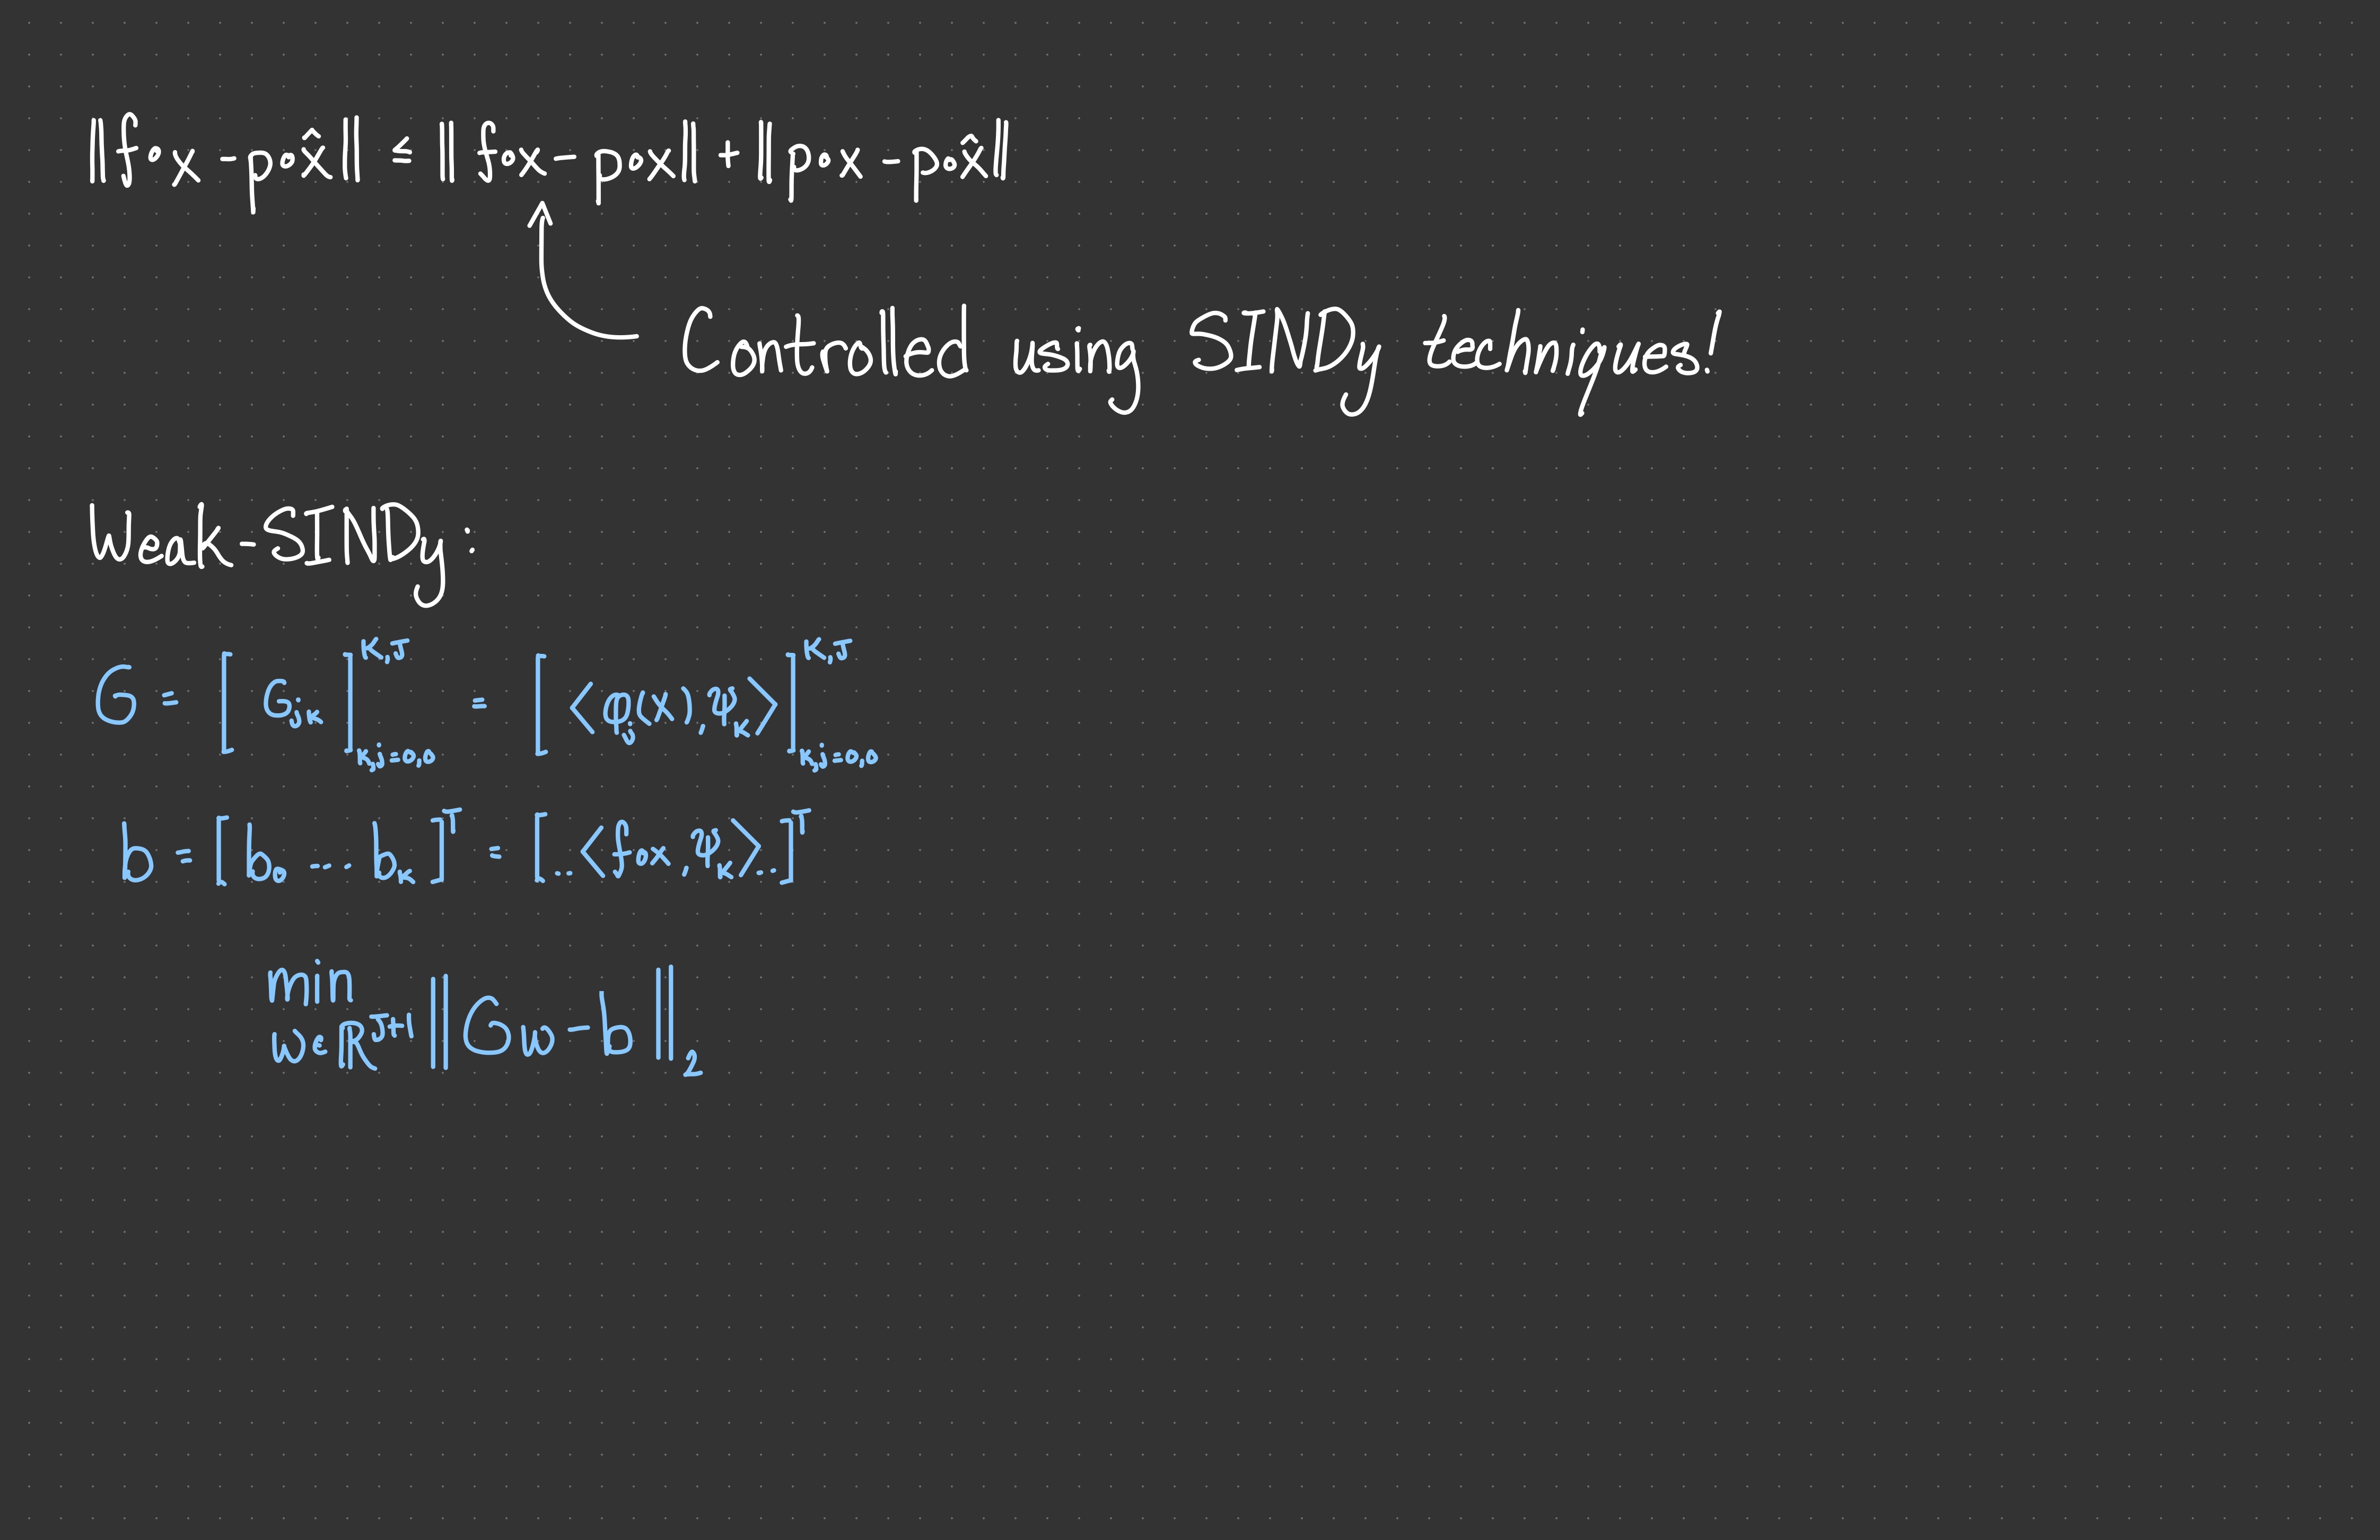 ‖f∘x - p∘x̂‖ ≤ ‖f∘x - p∘x‖ + ‖p∘x - p∘x̂‖
Controlled using SINDy techniques!
Weak-SINDy:
G = [G_{jk}]_{k,j=0,0}^{K,J} = [⟨φ_j(x), ψ_k⟩]_{k,j=0,0}^{K,J}
b = [b_0 ... b_K]^T = [..⟨f∘x, ψ_k⟩..]^T
min_{w∈ℝ^{J+1}} ‖Gw - b‖_2